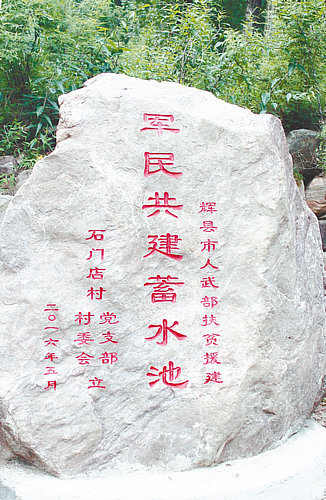 辉县市人武部扶贫援建
军民共建蓄水池
石门店村党支部村委会立
二〇一六年五月